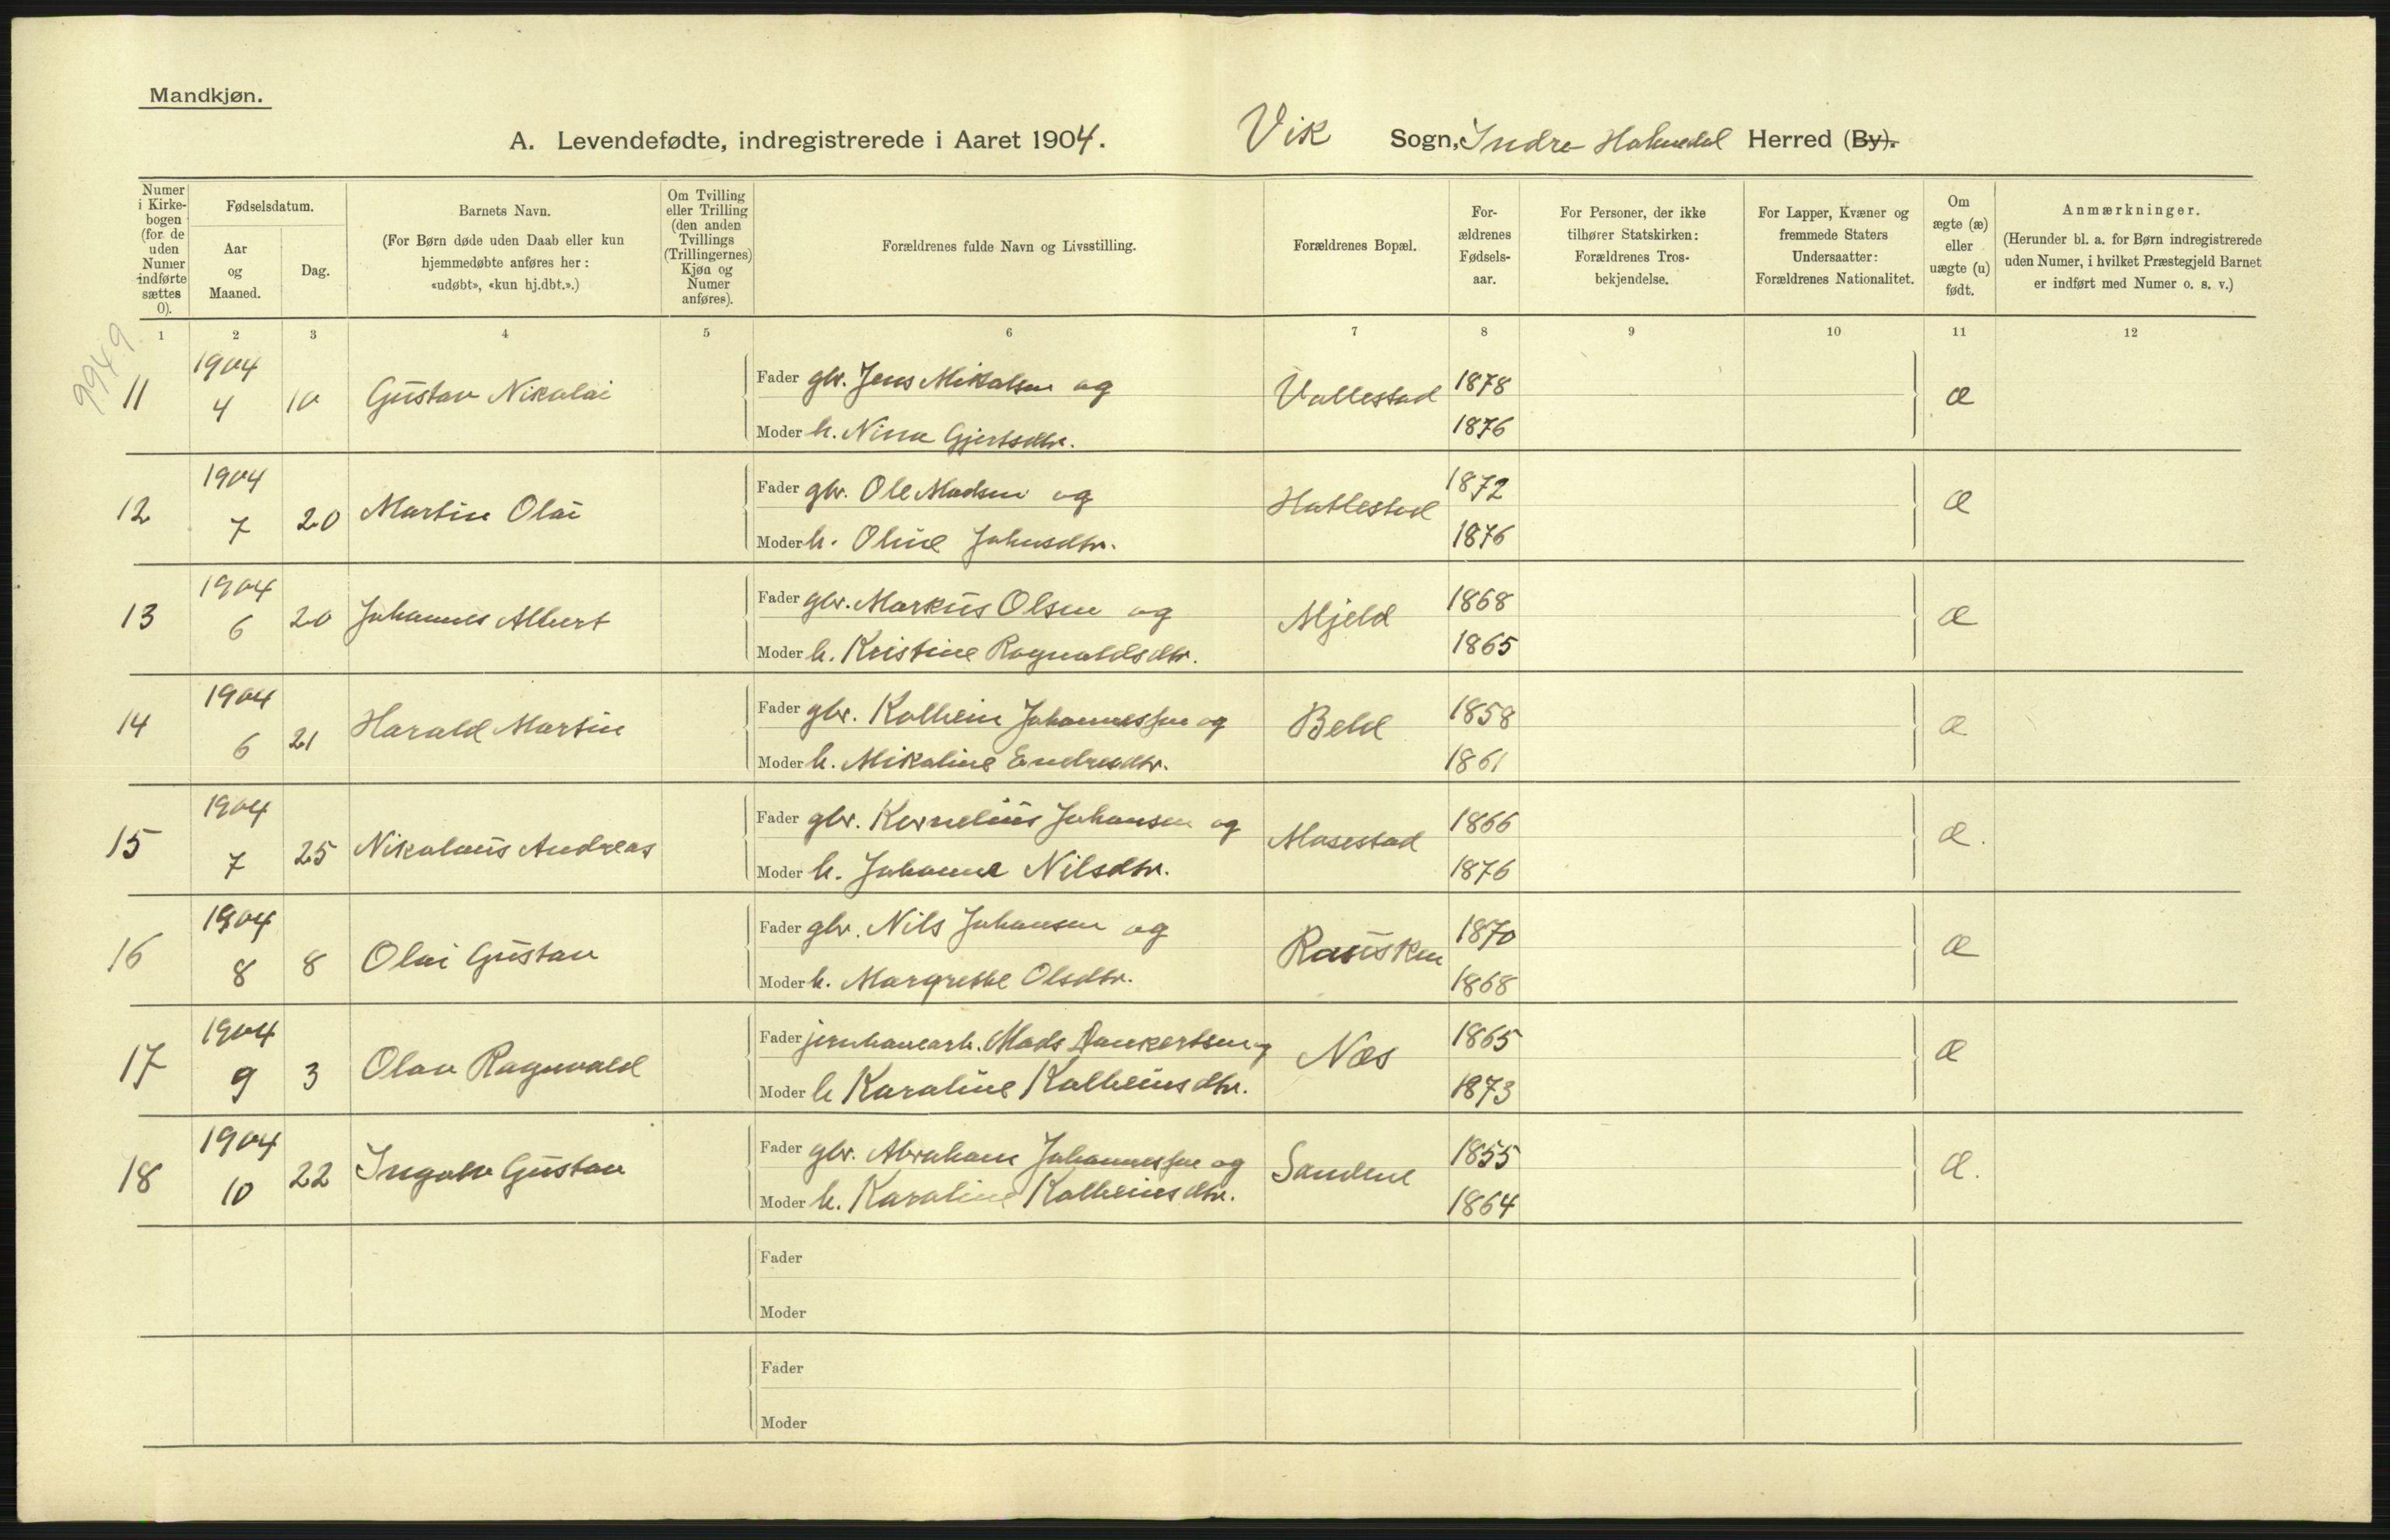 Mandkjøn.
A. Levendefødte, indregistrerede i Aaret 1904. Vik Sogn, Indre Holmedal Herred (By).
Numer i Kirkebogen (for de uden Numer indførte sættes 0).
Fødselsdatum.
Aar og Maaned.
Dag.
Barnets Navn.
(For Børn døde uden Daab eller kun hjemmedøbte anføres her: «udøbt», «kun hj.dbt.».)
Om Tvilling eller Trilling (den anden Tvillings (Trillingernes) Kjøn og Numer anføres).
Forældrenes fulde Navn og Livsstilling.
Forældrenes Bopæl.
Forældrenes Fødselsaar.
For Personer, der ikke tilhører Statskirken: Forældrenes Trosbekjendelse.
For Lapper, Kvæner og fremmede Staters Undersaatter: Forældrenes Nationalitet.
Om ægte (æ) eller uægte (u) født.
Anmærkninger.
(Herunder bl. a. for Børn indregistrerede uden Numer, i hvilket Præstegjeld Barnet er indført med Numer o. s. v.)
1 2 3 4 5 6 7 8 9 10 11 12
9949
11 1904 4 10 Gustav Nikolai Fader gbr. Jens Mikalsen og Vallestad 1878 æ
Moder h. Nina Gjertsdtr. 1876
12 1904 7 20 Martin Olai Fader gbr. Ole Madsen og Hatlestad 1872 æ
Moder h. Oline Johnsdtr. 1876
13 1904 6 20 Johannes Albert Fader gbr. Markus Olsen og Mjeld 1868 æ
Moder h. Kristine Ragnvaldsdtr. 1865
14 1904 6 21 Harald Martin Fader gbr. Kolbein Johannessen og Beld 1858 æ
Moder h. Mikaline Endresdtr. 1861
15 1904 7 25 Nikolaus Andreas Fader gbr. Kornelius Johansen og Masestad 1866 æ.
Moder h. Johanne Nilsdtr. 1876
16 1904 8 8 Olai Gustav Fader gbr. Nils Johansen og 1870 æ
Moder h. Margrethe Olsdtr. 1868
17 1904 9 3 Olav Ragnvald Fader jernbanearb. Mads Dankertsen og Næs 1865 æ
Moder h Karaline Kolbeinsdtr. 1873
18 1904 10 22 Ingolv Gustav Fader gbr. Abraham Johannessen og Sandene 1855 æ.
Moder h. Karaline Kolbeinsdtr. 1864
Fader
Moder
Fader
Moder